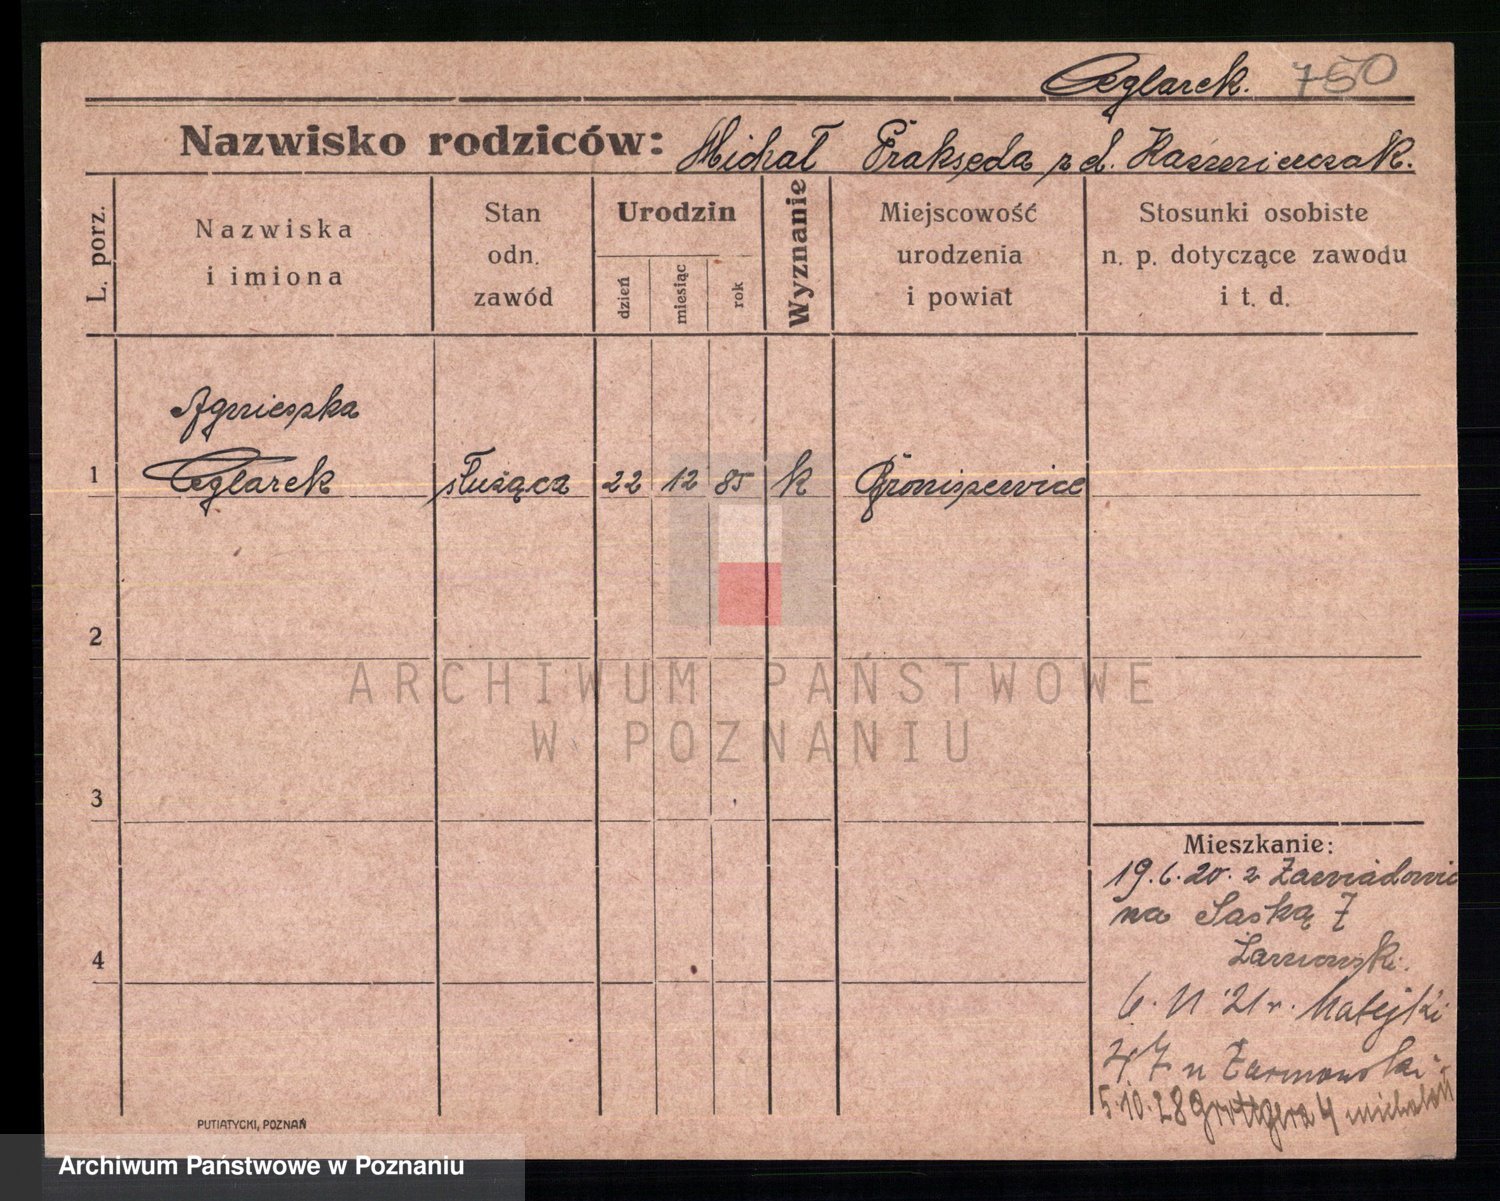 Ceglarek. 750
Nazwisko rodziców: Michał Prakseda z d. Kaźmierczak.
L. porz.
Nazwiska
i imiona
Stan
odn.
zawód
Urodzin
dzień
miesiąc
rok
Wyznanie
Miejscowość
urodzenia
i powiat
Stosunki osobiste
n. p. dotyczące zawodu
i t. d.
Agnieszka
1 Ceglarek służąca 22 12 85 k Broniszewice
2
ARCHIWUM PAŃSTWOWE
W POZNANIU
3
Mieszkanie:
19.6.20. z
na Saską 7
4
6.11.21 r. Matejki
47 u Żarnowski
5.10.28 Grottgera 4
PUTIATYCKI, POZNAŃ
Archiwum Państwowe w Poznaniu